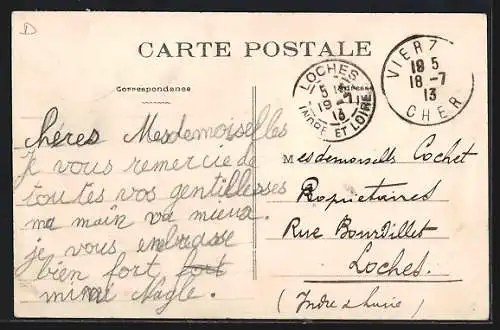 D
CARTE POSTALE
Correspondance
Adresse
LOCHES
5
19-7
13
INDRE ET LOIRE
VIERZ
18 5
18-7
13
CHER
chéres Mesdemoiselles
Je vous remercie de
toutes vos gentillesses
ma main va mieux.
je vous embrasse
bien fort fort
Nagle.
Mesdemoiselles Cochet
Propriétaires
Rue Bourdillet
Loches.
(Indre & Loire)